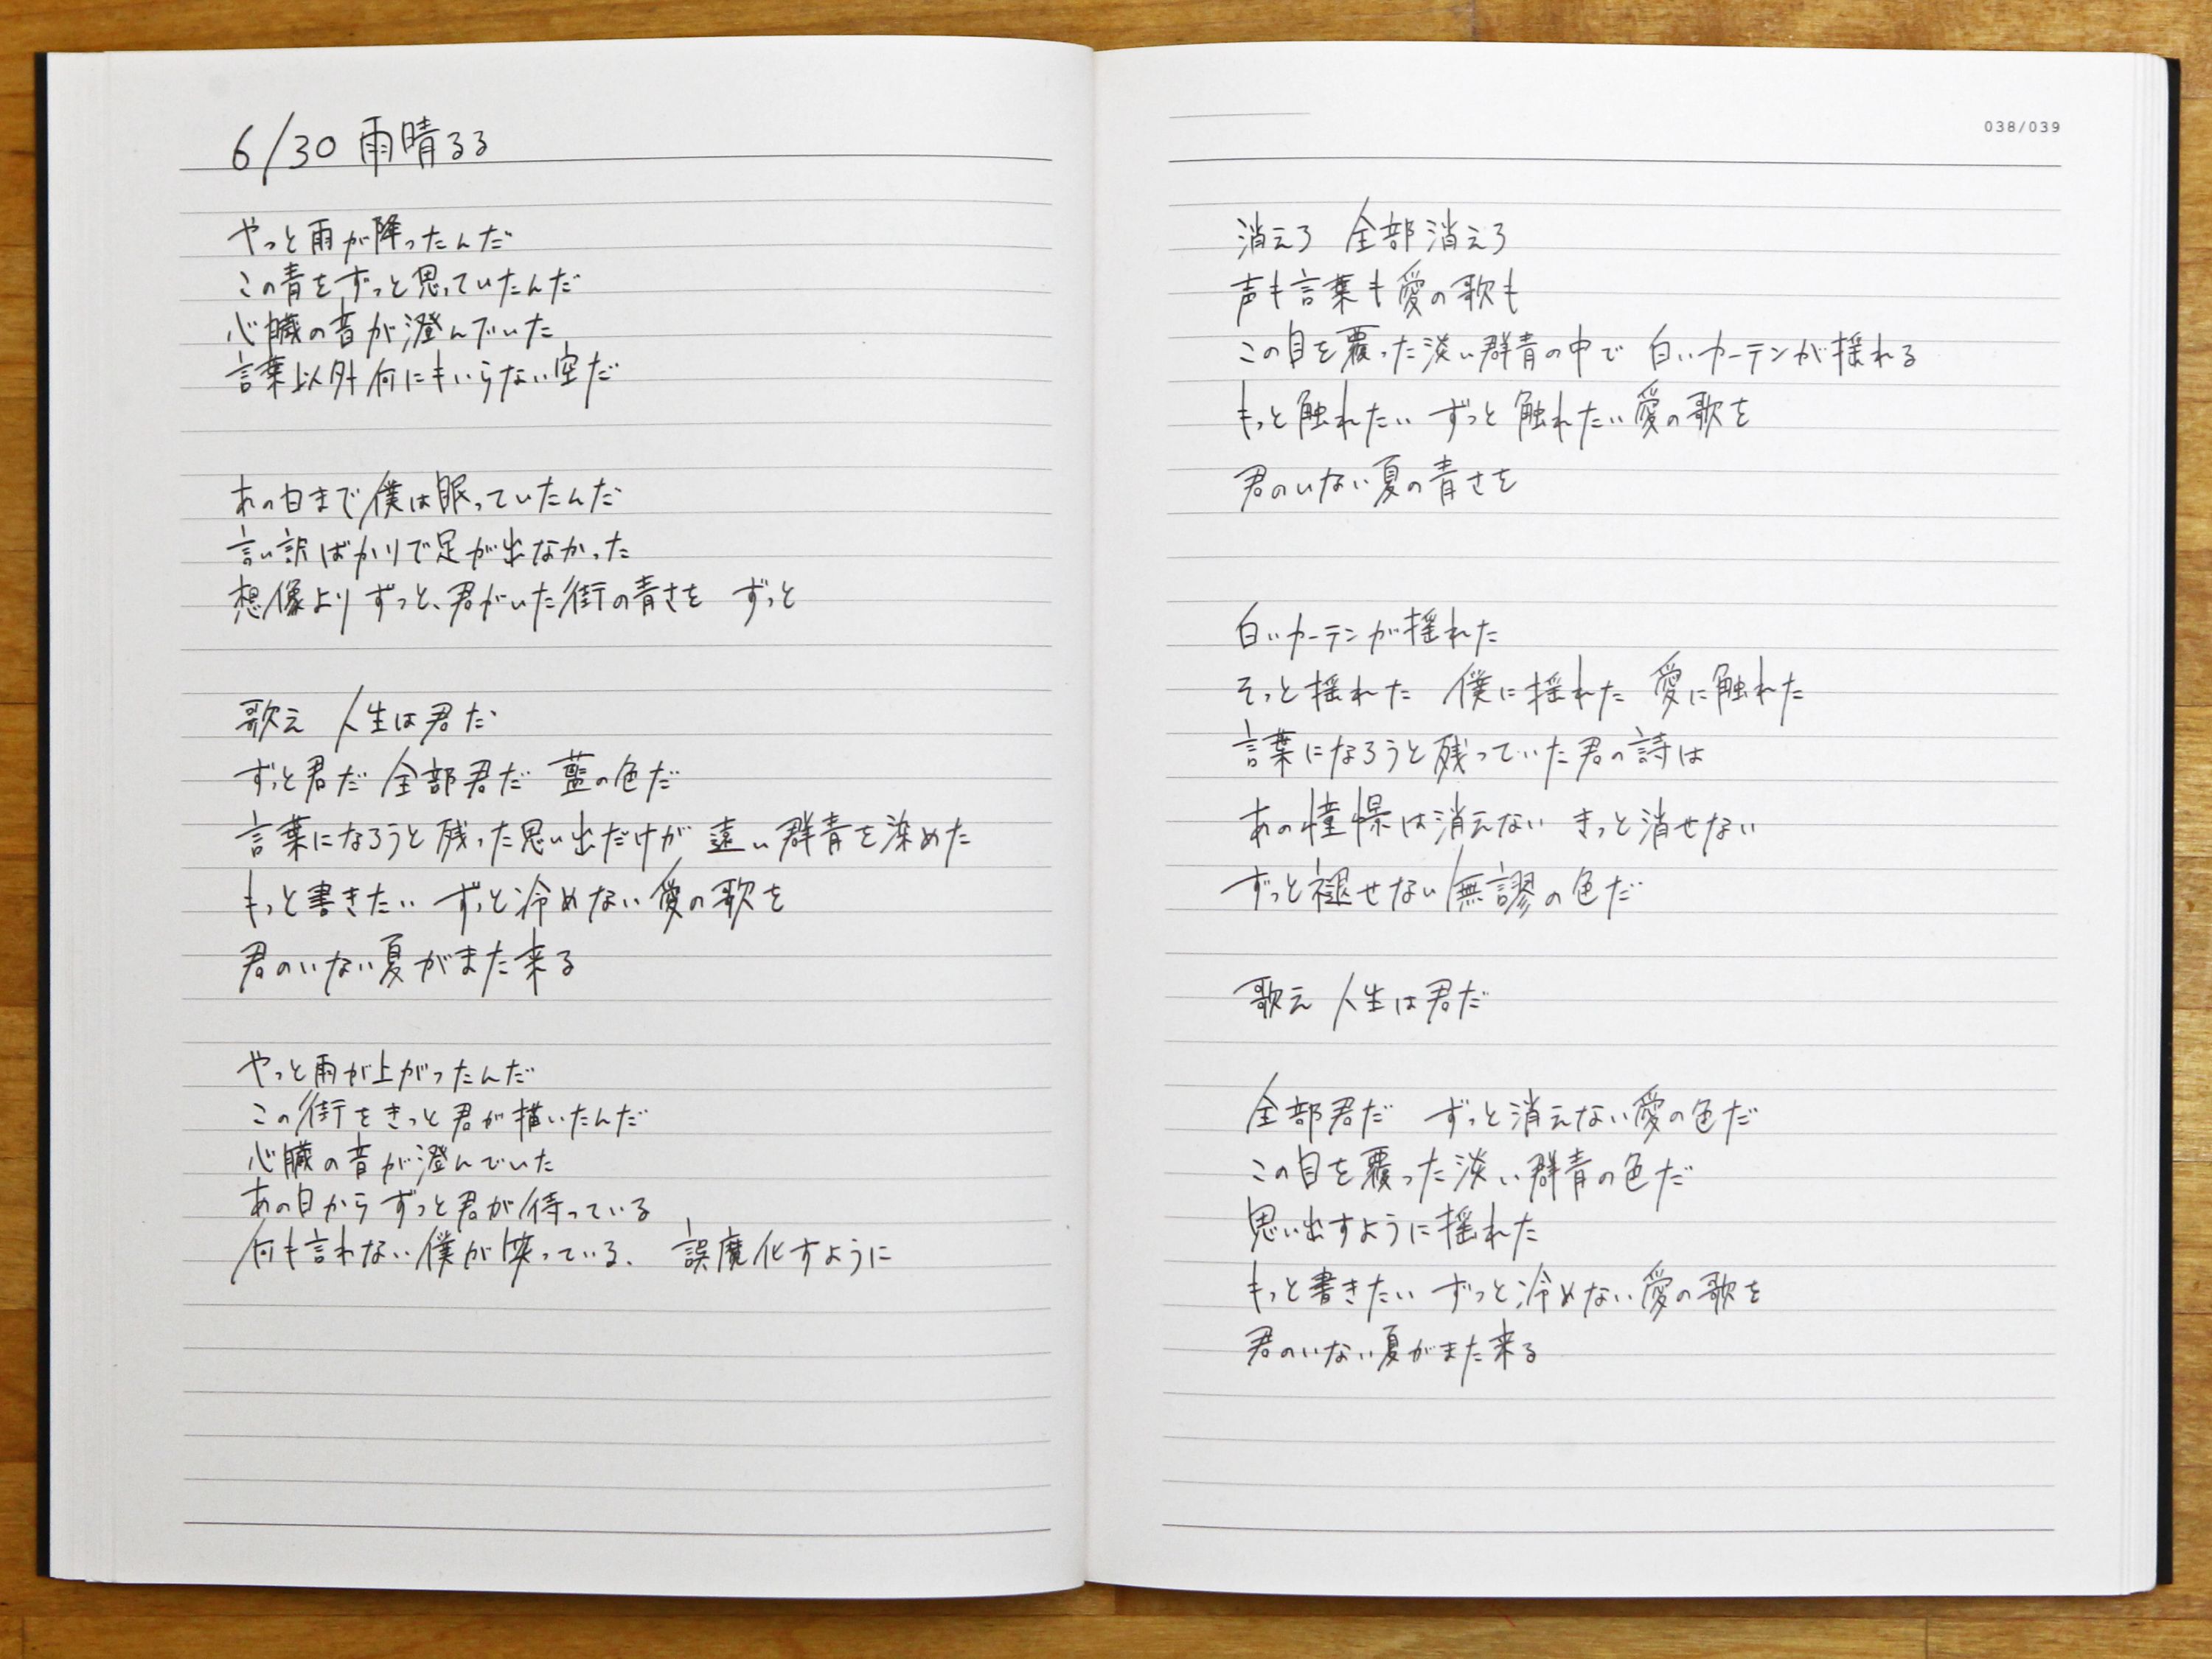 6/30 雨晴るる
やっと雨が降ったんだ
この青をずっと思っていたんだ
心臓の音が澄んでいた
言葉以外何にもいらない空だ
あの日まで僕は眠っていたんだ
言い訳ばかりで足が出なかった
想像よりずっと、君がいた街の青さを　ずっと
歌え　人生は君だ
ずっと君だ 全部君だ 藍の色だ
言葉になろうと残った思い出だけが 遠い群青を染めた
もっと書きたい ずっと冷めない愛の歌を
君のいない夏がまた来る
やっと雨が上がったんだ
この街をきっと君が描いたんだ
心臓の音が澄んでいた
あの日からずっと君が待っている
何も言わない僕が笑っている、　誤魔化すように
038/039
消えろ　全部消えろ
声も言葉も愛の歌も
この目を覆った淡い群青の中で　白いカーテンが揺れる
もっと触れたい ずっと触れたい愛の歌を
君のいない夏の青さを
白いカーテンが揺れた
そっと揺れた　僕に揺れた　愛に触れた
言葉になろうと残っていた君の詩は
あの憧憬は消えない きっと消せない
ずっと褪せない無謬の色だ
歌え 人生は君だ
全部君だ　ずっと消えない愛の色だ
この目を覆った淡い群青の色だ
思い出すように揺れた
もっと書きたい ずっと冷めない愛の歌を
君のいない夏がまた来る